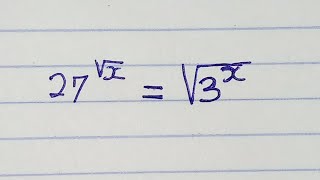 27^√x = √(3^x)